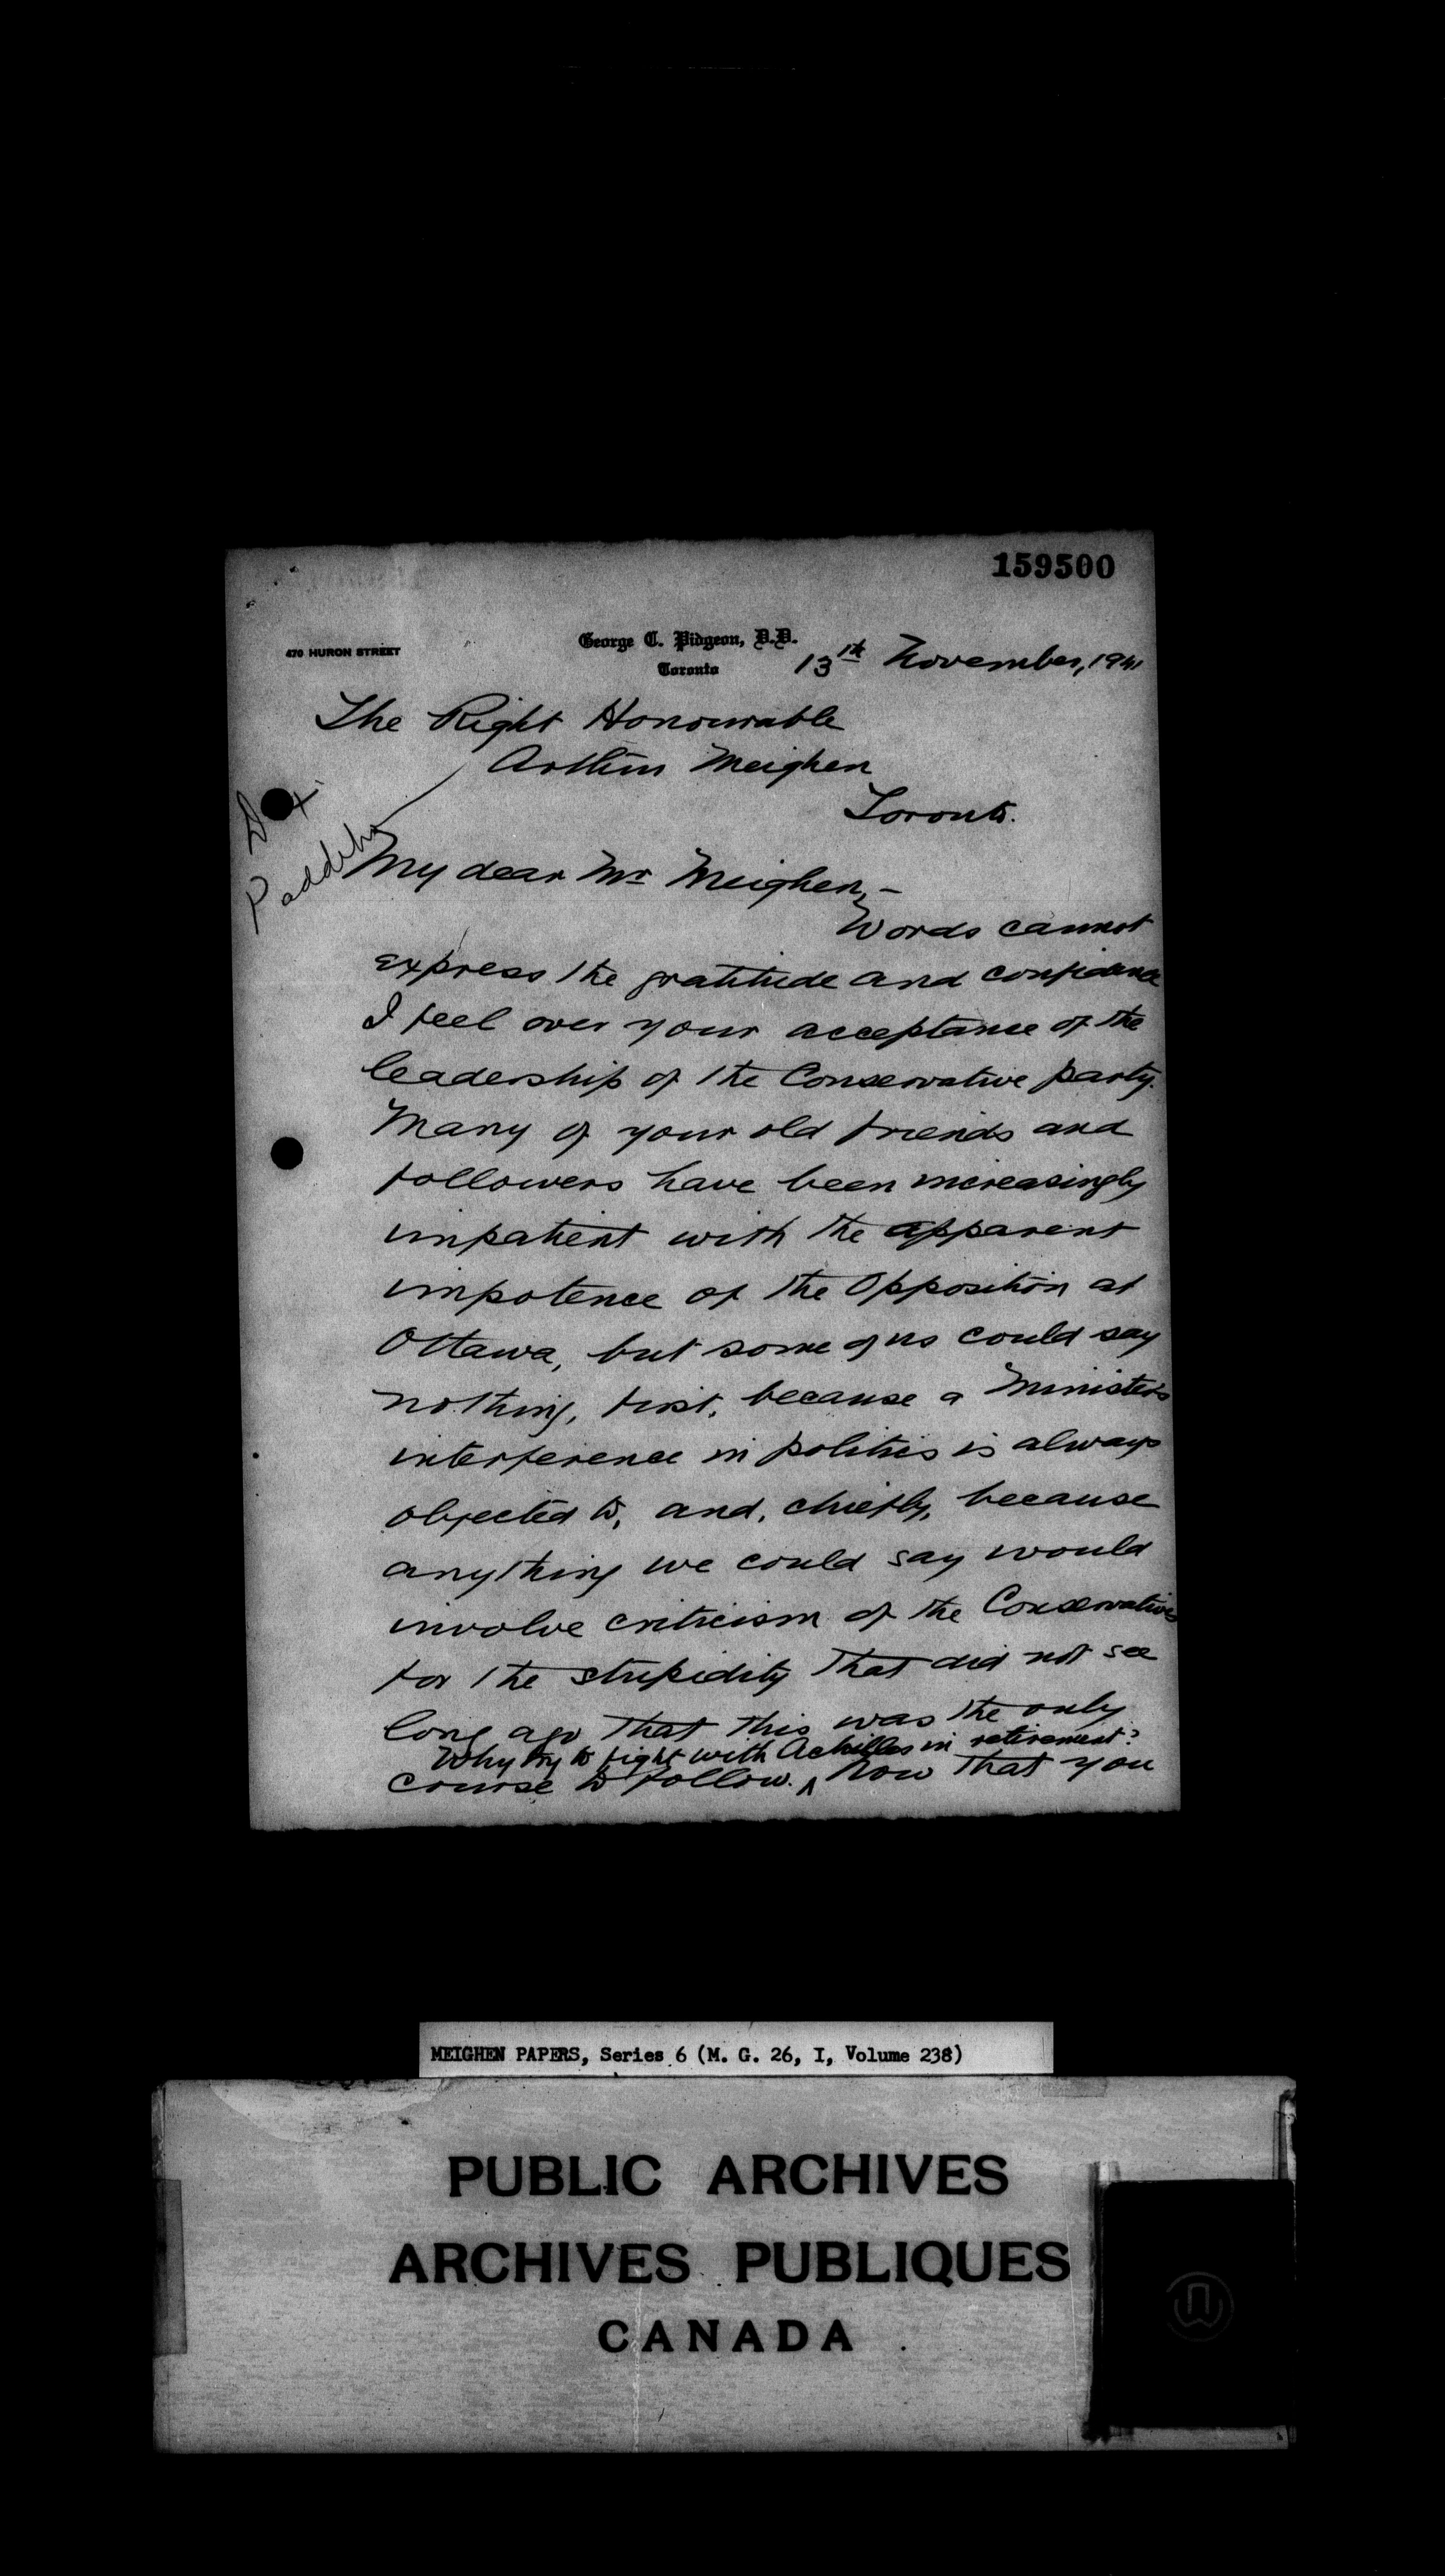 159500
470 HURON STREET
George C. Pidgeon, D.D.
Toronto
13th November, 1941
The Right Honourable
Arthur Meighen
Toronto.
My dear Mr Meighen, -
Words cannot
express the gratitude and confidence
I feel over your acceptance of the
leadership of the Conservative party.
Many of your old friends and
followers have been increasingly
impatient with the apparent
impotence of the Opposition at
Ottawa, but some of us could say
nothing, first, because a Minister's
interference in politics is always
objected to, and, chiefly, because
anything we could say would
involve criticism of the Conservatives
for the stupidity that did not see
long ago that this was the only
Why try to fight with Achilles in retirement?
course to follow. ^ Now that you
MEIGHEN PAPERS, Series 6 (M. G. 26, I, Volume 238)
PUBLIC ARCHIVES
ARCHIVES PUBLIQUES
CANADA